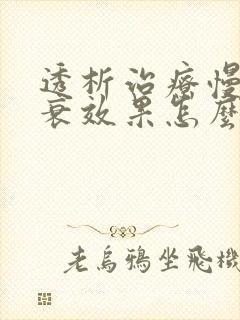 透析治疗慢
衰效果怎麼
老烏鴉坐飛機